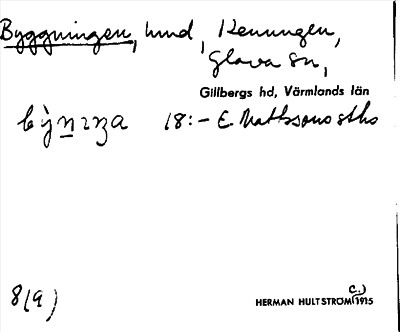 Byggningen, hmd, Kenungen,
Glava sn,
Gillbergs hd, Värmlands län
18:- E. Mattssons sths
8(9)
HERMAN HULTSTRÖM (c.) 1915